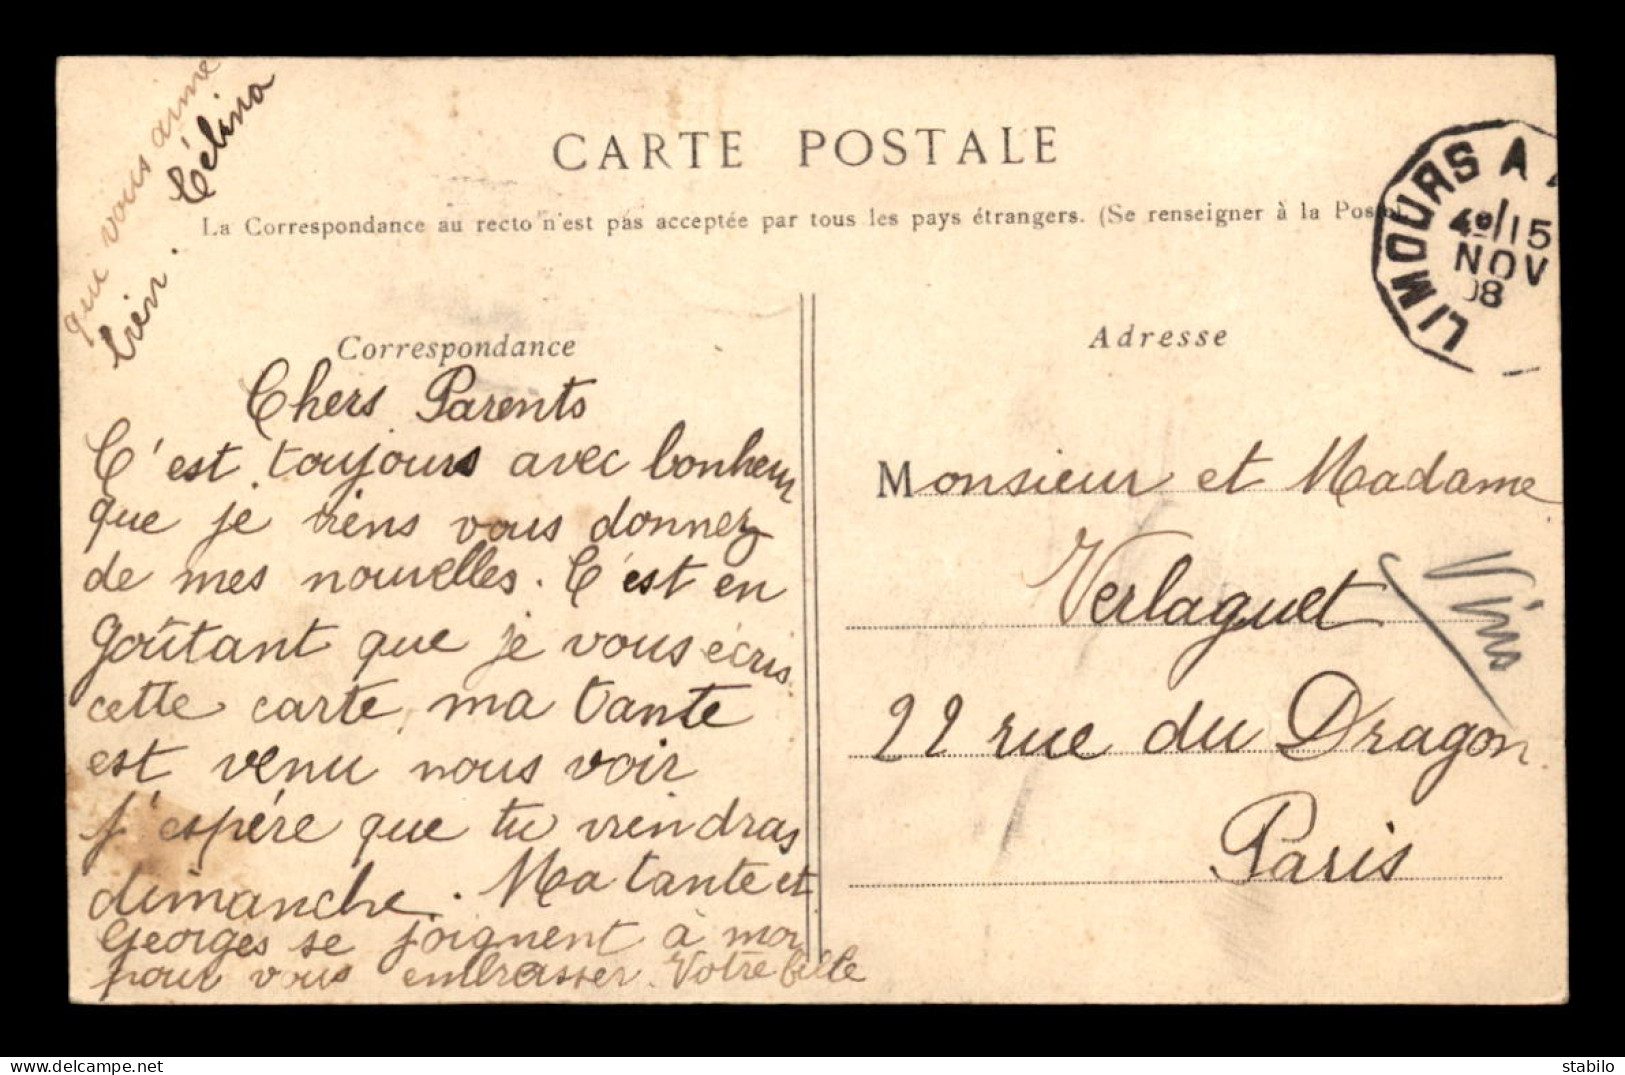 CARTE POSTALE
La Correspondance au recto n'est pas acceptée par tous les pays étrangers. (Se renseigner à la Poste).
LIMOURS A
4e/15
NOV
08
Correspondance
Chers Parents
C'est toujours avec bonheur
que je viens vous donnez
de mes nouvelles. C'est en
goûtant que je vous écris
cette carte, ma tante
est venu nous voir
j'espére que tu viendras
dimanche. Ma tante et
Georges se joignent à moi
pour vous embrasser. Votre fille
qui vous aime
bien. Célina
Adresse
Monsieur et Madame
Verlaguet
22 rue du Dragon
Paris
Vins
delcampe.net
stabilo